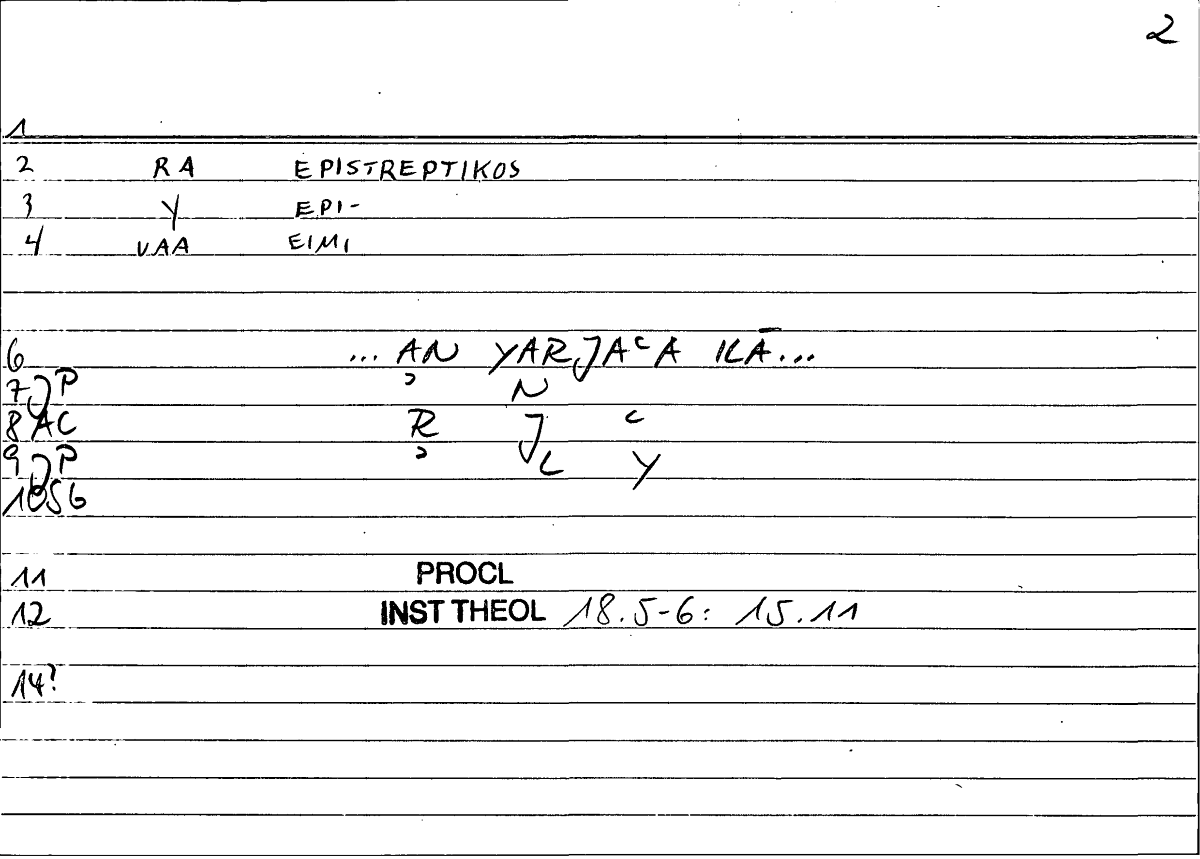 2
1
2 RA EPISTREPTIKOS
3 Y EPI-
4 VAA EIMI
6 ... AN YARJAᶜA ILĀ...
7 JP ɔ N
8 AC R J ᶜ
9 JP ɔ L Y
10 SG
11 PROCL
12 INST THEOL 18.5-6: 15.11
14?